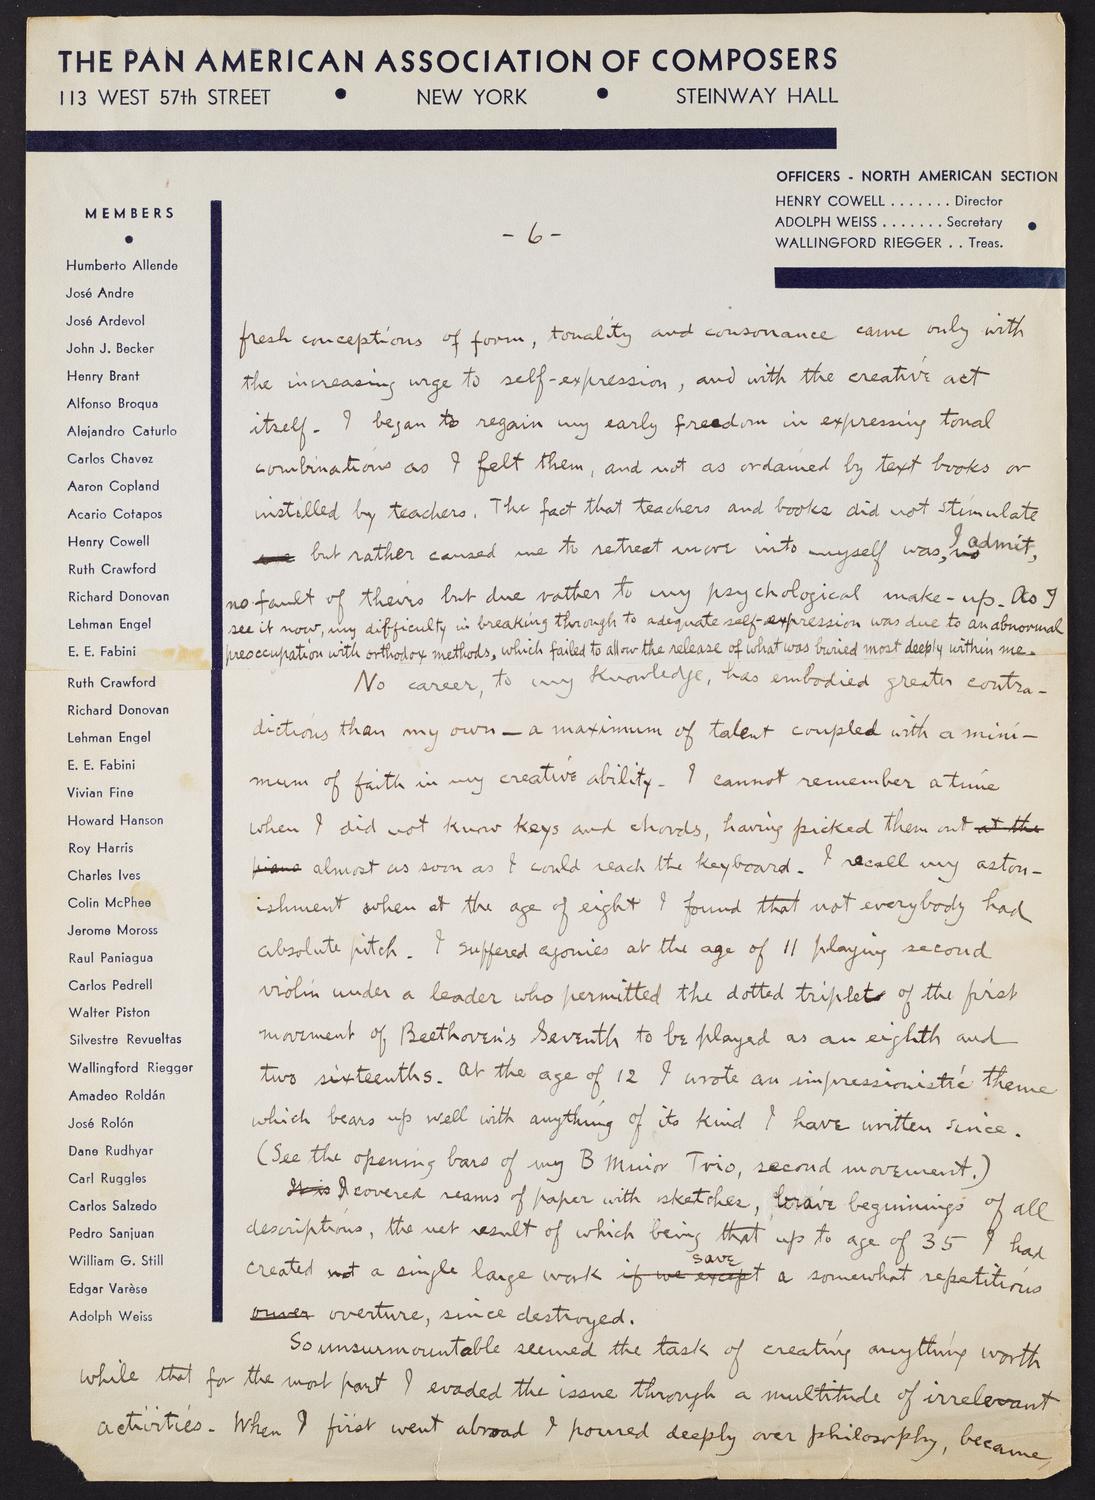 THE PAN AMERICAN ASSOCIATION OF COMPOSERS
113 WEST 57th STREET • NEW YORK • STEINWAY HALL
OFFICERS - NORTH AMERICAN SECTION
HENRY COWELL . . . . . . . Director
ADOLPH WEISS . . . . . . . Secretary
WALLINGFORD RIEGGER . . Treas.
MEMBERS
•
Humberto Allende
José Andre
José Ardevol
John J. Becker
Henry Brant
Alfonso Broqua
Alejandro Caturlo
Carlos Chavez
Aaron Copland
Acario Cotapos
Henry Cowell
Ruth Crawford
Richard Donovan
Lehman Engel
E. E. Fabini
Ruth Crawford
Richard Donovan
Lehman Engel
E. E. Fabini
Vivian Fine
Howard Hanson
Roy Harris
Charles Ives
Colin McPhee
Jerome Moross
Raul Paniagua
Carlos Pedrell
Walter Piston
Silvestre Revueltas
Wallingford Riegger
Amadeo Roldán
José Rolón
Dane Rudhyar
Carl Ruggles
Carlos Salzedo
Pedro Sanjuan
William G. Still
Edgar Varèse
Adolph Weiss
- 6 -
fresh conceptions of form, tonality and consonance came only with
the increasing urge to self-expression, and with the creative act
itself. I began to regain my early freedom in expressing tonal
combinations as I felt them, and not as ordained by text books or
instilled by teachers. The fact that teachers and books did not stimulate
me but rather caused me to retreat more into myself was, I admit,
no fault of theirs but due rather to my psychological make-up. As I
see it now, my difficulty in breaking through to adequate self-expression was due to an abnormal
preoccupation with orthodox methods, which failed to allow the release of what was buried most deeply within me.
No career, to my knowledge, has embodied greater contra-
dictions than my own — a maximum of talent coupled with a mini-
mum of faith in my creative ability. I cannot remember a time
when I did not know keys and chords, having picked them out at the
piano almost as soon as I could reach the keyboard. I recall my aston-
ishment when at the age of eight I found that not everybody had
absolute pitch. I suffered agonies at the age of 11 playing second
violin under a leader who permitted the dotted triplets of the first
movement of Beethoven's Seventh to be played as an eighth and
two sixteenths. At the age of 12 I wrote an impressionistic theme
which bears up well with anything of its kind I have written since.
(See the opening bars of my B Minor Trio, second movement.)
It is I covered reams of paper with sketches, brave beginnings of all
descriptions, the net result of which being that up to age of 35 I had
created not a single large work if we except save a somewhat repetitious
overture, since destroyed.
So unsurmountable seemed the task of creating anything worth
while that for the most part I evaded the issue through a multitude of irrelevant
activities. When I first went abroad I poured deeply over philosophy, became